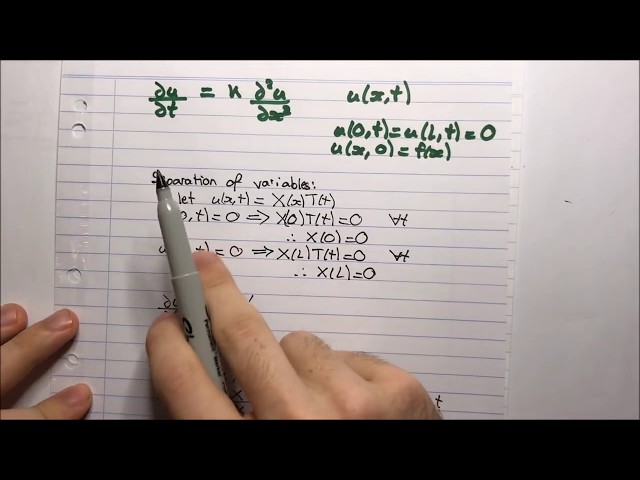 ∂u/∂t = k ∂²u/∂x² u(x,t)
u(0,t)=u(L,t)=0
u(x,0)=f(x)
Separation of variables:
let u(x,t) = X(x)T(t)
0,t)=0 ⟹ X(0)T(t)=0 ∀t
∴ X(0)=0
u t)=0 ⟹ X(L)T(t)=0 ∀t
∴ X(L)=0
∂u
t